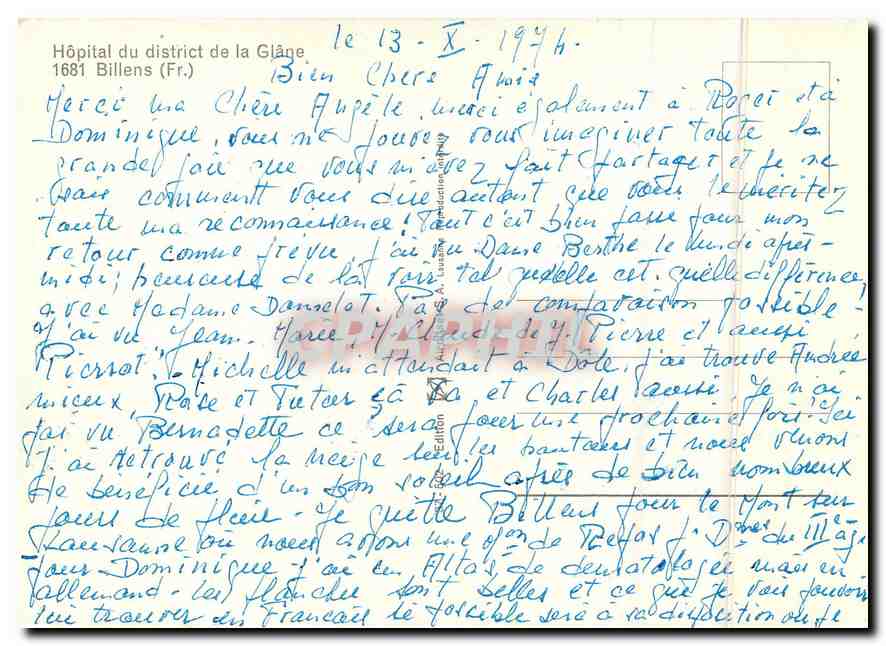 Hôpital du district de la Glâne
1681 Billens (Fr.)
le 13 - X - 1974.
Bien Chere Amie
Merci ma Chère Angèle, merci également à Roger et à
Dominique, vous ne pouvez vous imaginer toute la
grande joie que vous m'avez fait partager et je ne
sais comment vous dire autant que vous le méritez
toute ma reconnaissance! Tout c'est bien passé pour mon
retour comme prévu, j'ai vu Berthe le lundi après-
midi; heureuse de la voir tel quelle est. quelle différence,
avec Madame Danselot. Pas de comparaison possible!
J'ai vu Jean-Marie, M-Claude de J. Pierre et aussi
Pierrot. Michelle m'attendait à Dôle, j'ai trouvé Andrée
mieux, Rose et Tutur çà va et Charles aussi je n'ai
pas vu Bernadette ce sera pour une prochaine fois! Ici
j'ai retrouvé la neige sur les hauteurs et nous venons
de bénéficié d'un bon soleil après de bien nombreux
jours de pluie - Je quitte Billens pour le Mont sur
Lausanne où nous avons une de Repos p. Dmes du IIIe âge
pour Dominique - j'ai un Atlas de mais en
allemand - les planches sont belles et ce que je vais pouvoir
lui trouver en Français si possible sera à sa disposition ou je
Edition
S.A. Lausanne
Reproduction interdite
CPAPHIL